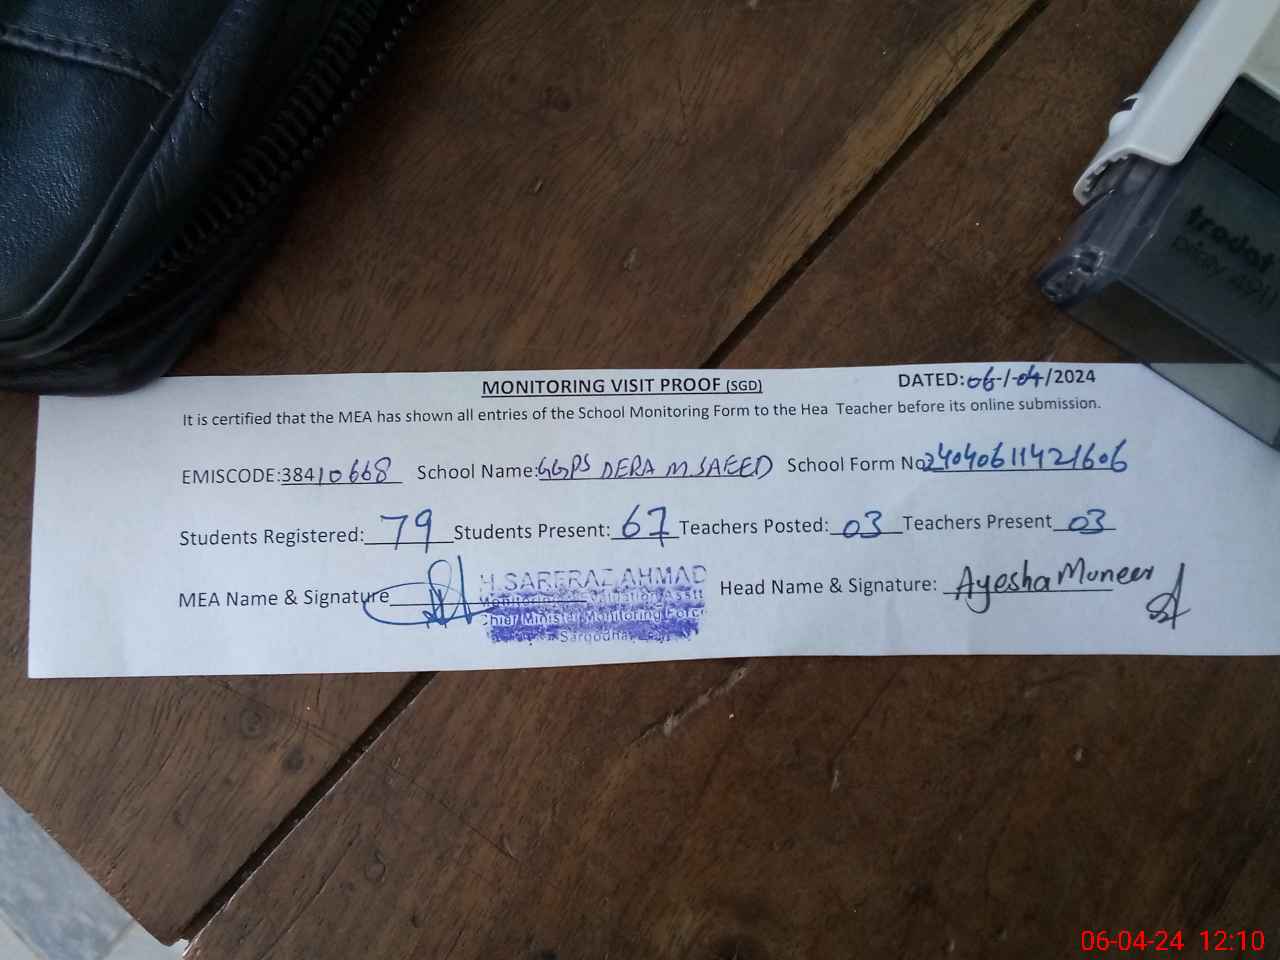 trodat
printy 4911
MONITORING VISIT PROOF (SGD) DATED:06-/-04/2024
It is certified that the MEA has shown all entries of the School Monitoring Form to the Hea Teacher before its online submission.
EMISCODE:38410668 School Name:GGPS DERA M SAEED School Form No24040611421606
Students Registered: 79 Students Present: 67 Teachers Posted: 03 Teachers Present 03
MEA Name & Signature Head Name & Signature: Ayesha Muneer
H.SARFRAZ AHMAD
Monitoring Evaluation Asstt
Chief Minister Monitoring Force
Sargodha
06-04-24 12:10